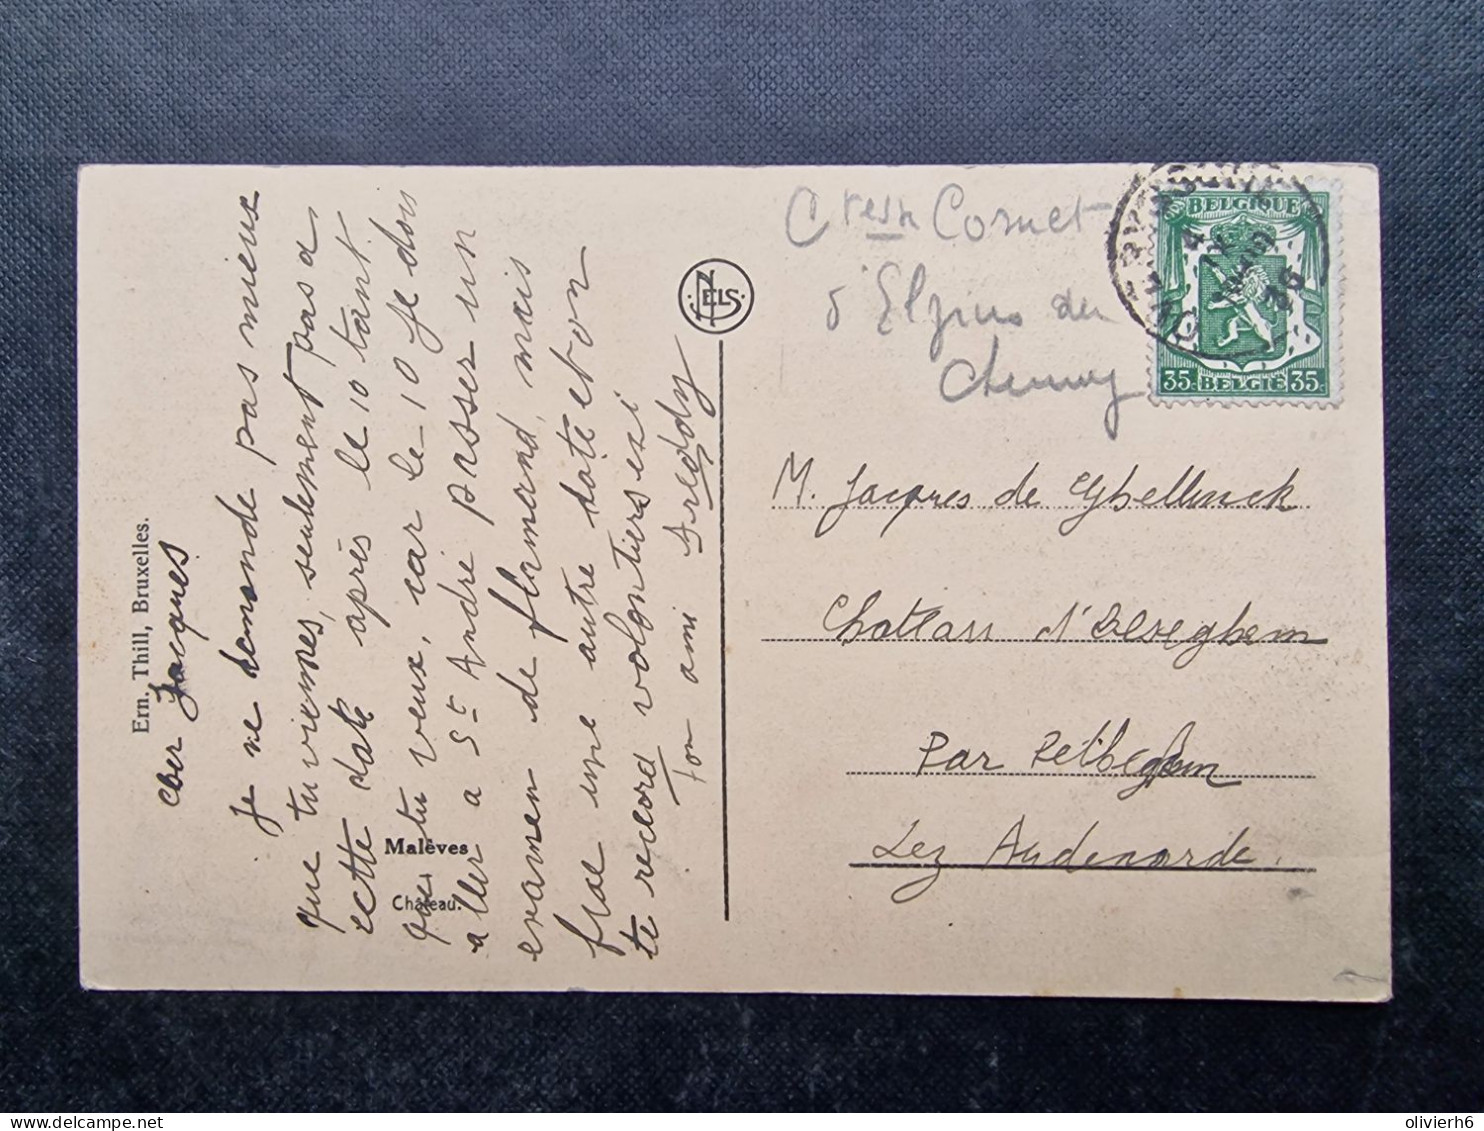 cher Jacques
je ne demande pas mieux
que tu viennes, seulement pas a
cette date après le 10 tant
que tu veux, car le 10 je dois
aller a St André passer un
examen de flamand, mais
fixe une autre date et on
te recevra volontiers ici
ton ami Freddy
Ern. Thill, Bruxelles.
Malèves
Château.
NELS
Ctesse Cornet
d'Elzius du
Chenoy
BELGIQUE
35c BELGIË 35c
4 IX
36
M. Jacques de Ghellinck
Chateau d'Elseghem
Par Petteghem
Lez Audenarde.
olivierh6